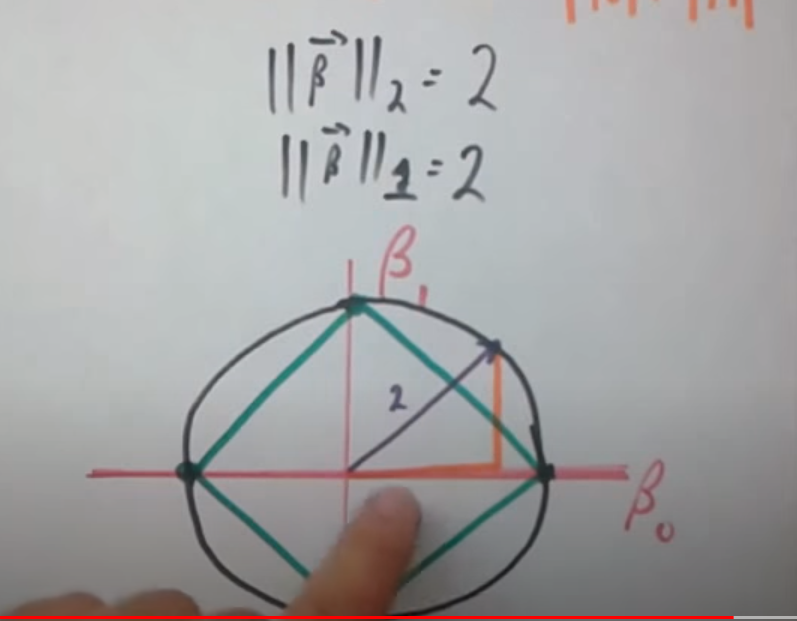 ||β⃗||₂ = 2
||β⃗||₁ = 2
β₁
2
β₀